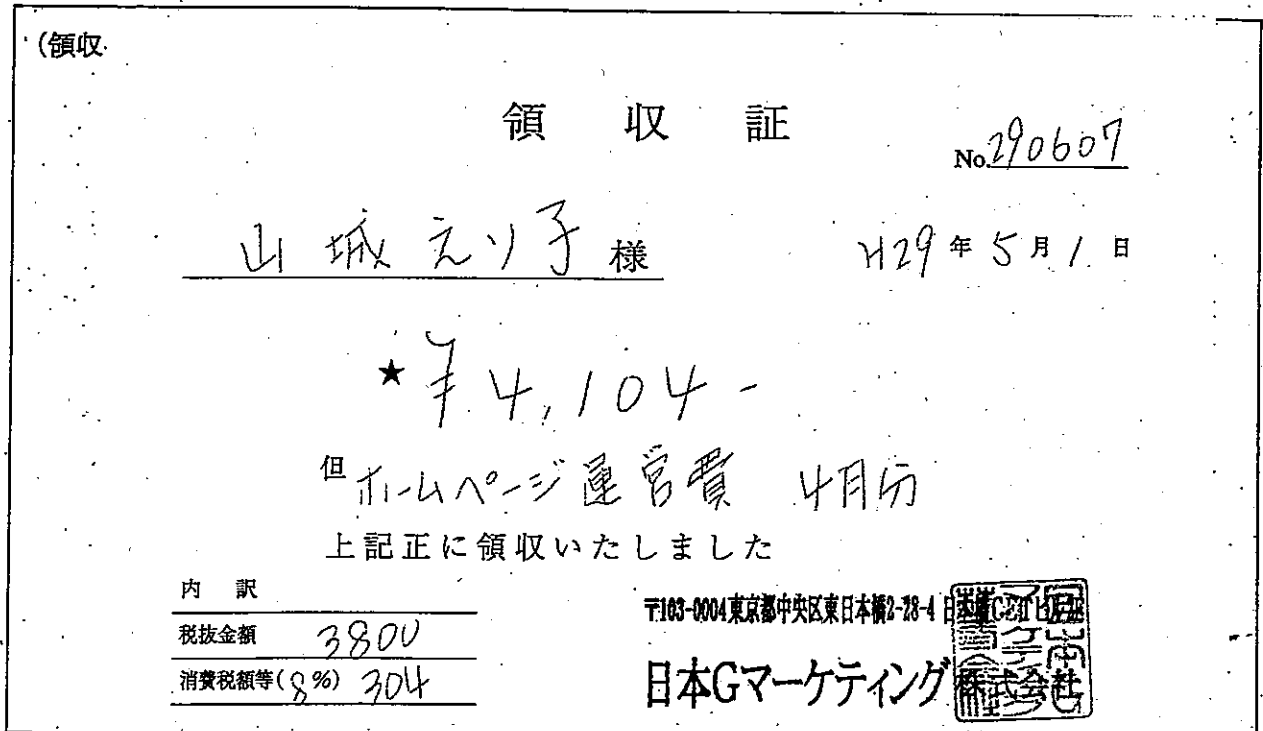 (領収
領収証
No.290607
山城えり子様
H29年5月1日
★¥4,104-
但ホームページ運営費 4月分
上記正に領収いたしました
内訳
税抜金額 3800
消費税額等(8%) 304
〒103-0004東京都中央区東日本橋2-28-4
日本Gマーケティング株式会社